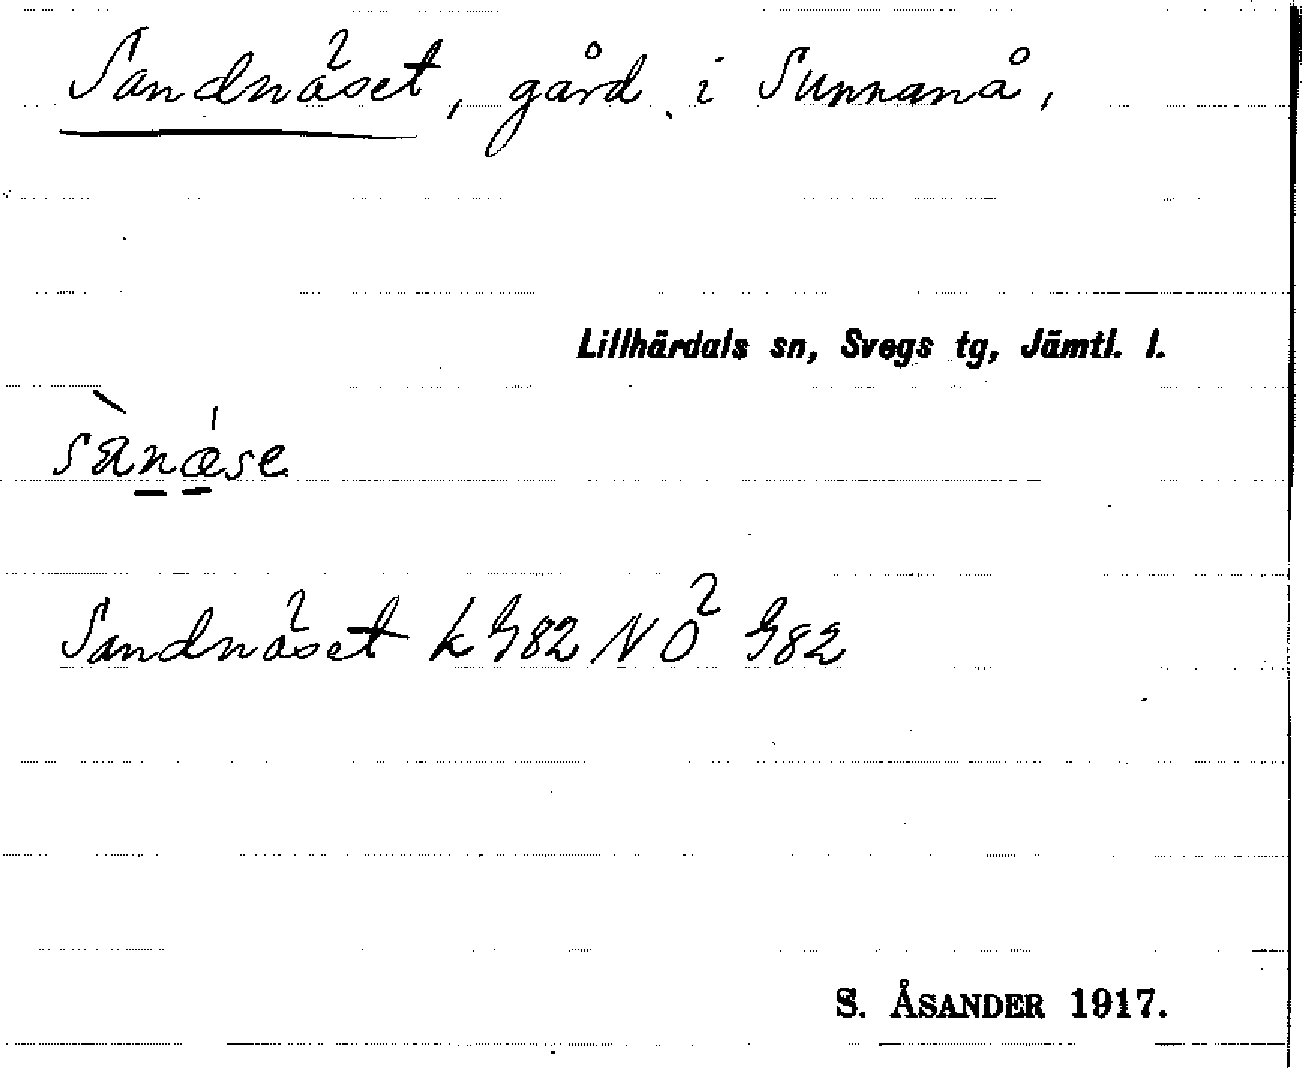 Sandnäset, gård i Sunnanå,
Lillhärdals sn, Svegs tg, Jämtl. l.
sànæ̍se
Sandnäset k G82 NÖ G82
S. ÅSANDER 1917.